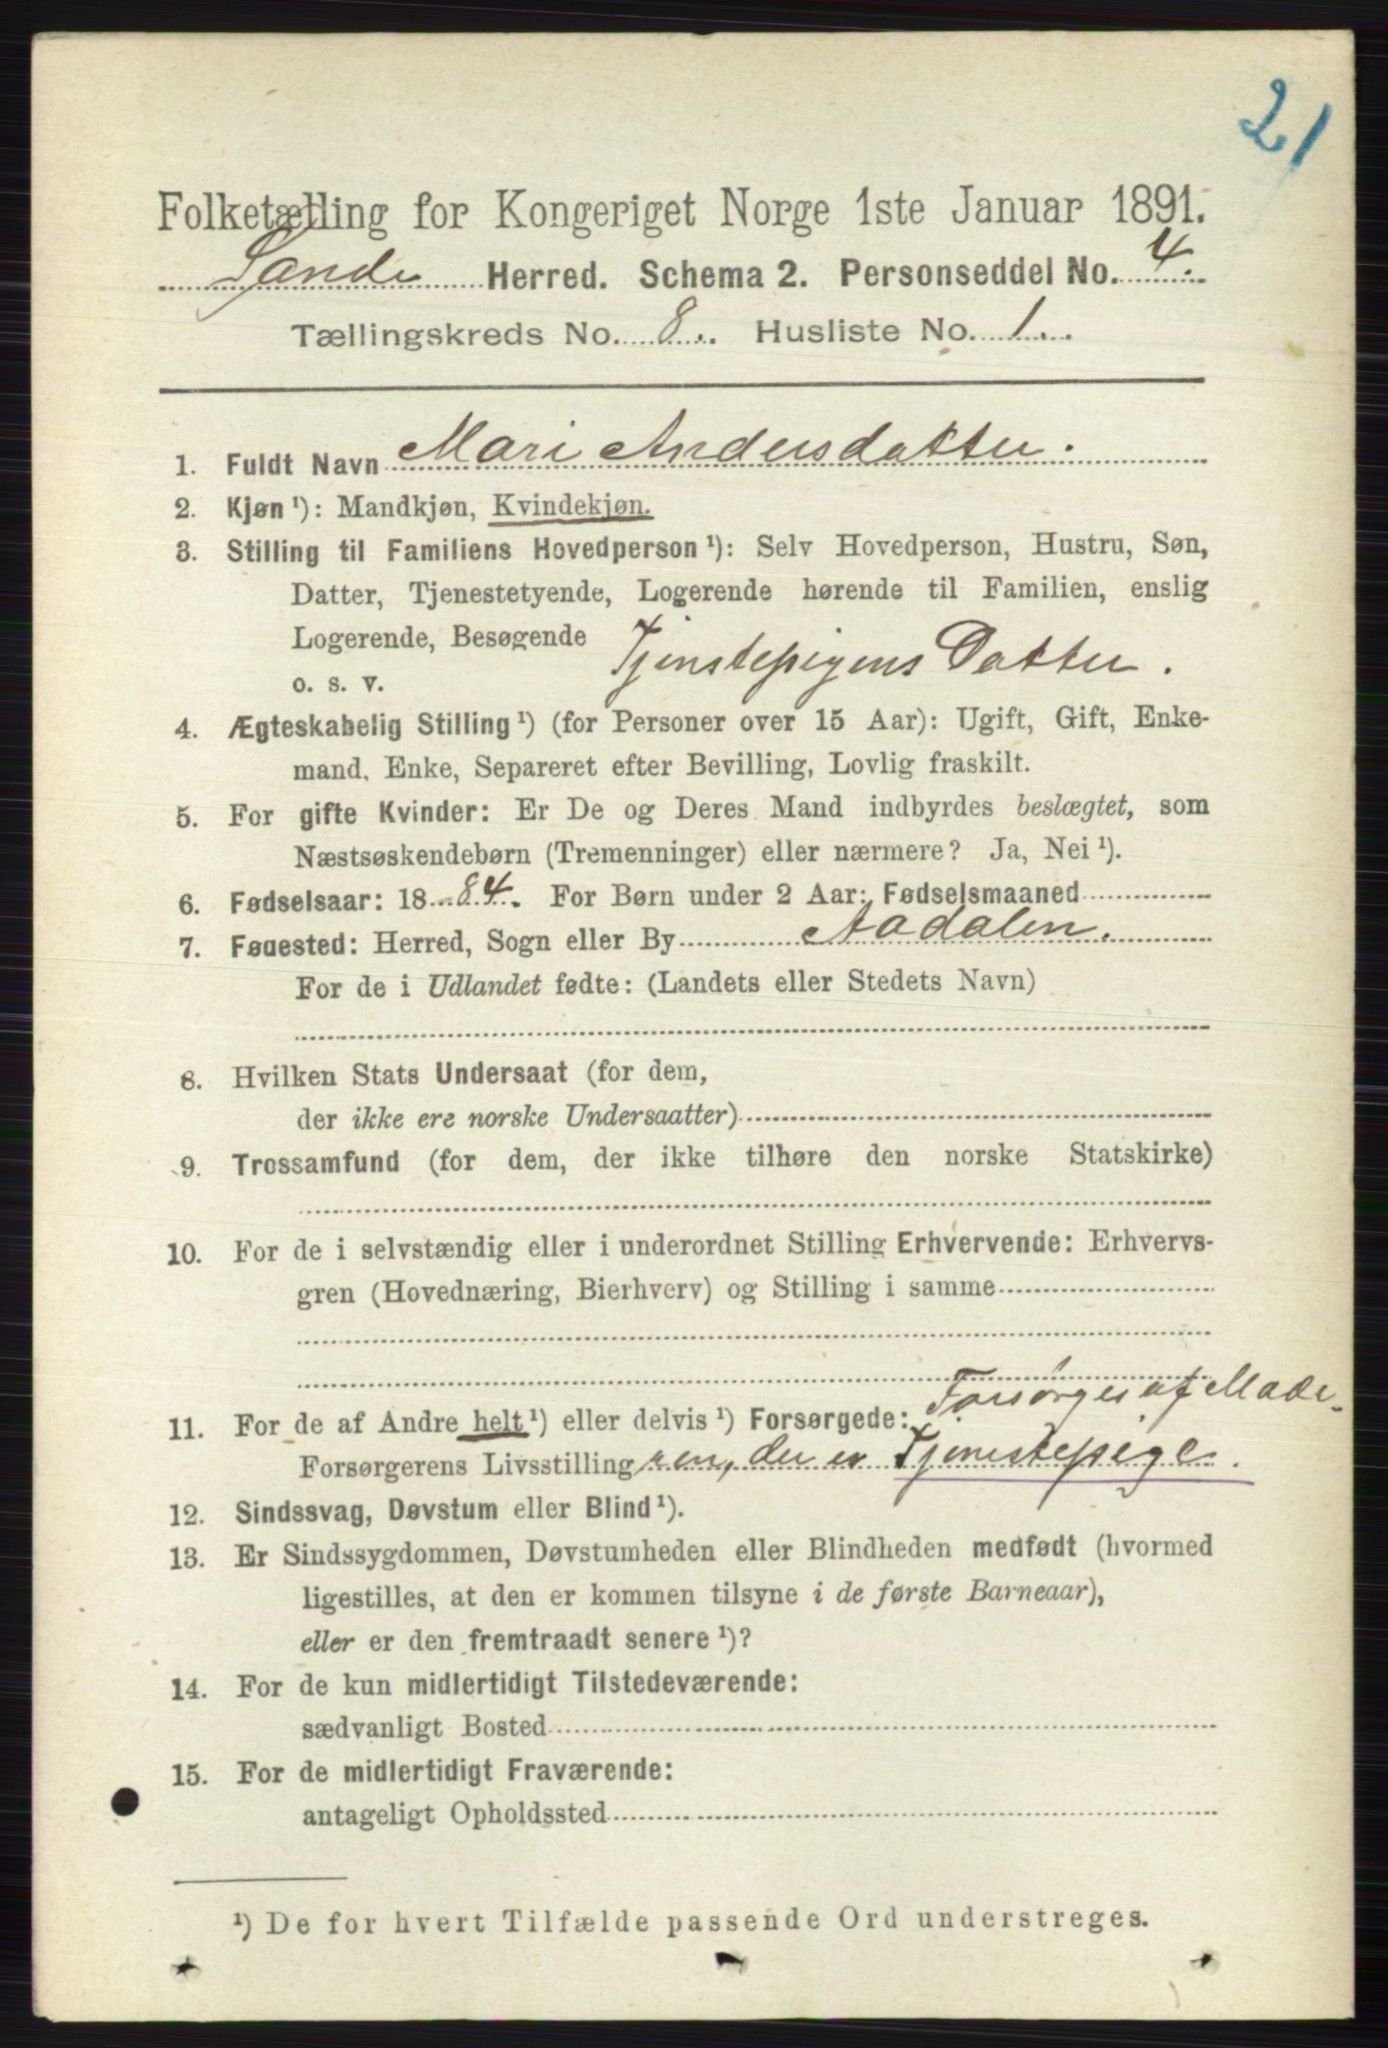 21
Folketælling for Kongeriget Norge 1ste Januar 1891.
Sande Herred. Schema 2. Personseddel No. 4.
Tællingskreds No. 8. Husliste No. 1.
1. Fuldt Navn Mari Andersdatter.
2. Kjøn ¹): Mandkjøn, Kvindekjøn.
3. Stilling til Familiens Hovedperson ¹): Selv Hovedperson, Hustru, Søn,
Datter, Tjenestetyende, Logerende hørende til Familien, enslig
Logerende, Besøgende
o. s. v. Tjenstepigens Datter.
4. Ægteskabelig Stilling ¹) (for Personer over 15 Aar): Ugift, Gift, Enke-
mand, Enke, Separeret efter Bevilling, Lovlig fraskilt.
5. For gifte Kvinder: Er De og Deres Mand indbyrdes beslægtet, som
Næstsøskendebørn (Tremenninger) eller nærmere? Ja, Nei ¹).
6. Fødselsaar: 1884. For Børn under 2 Aar: Fødselsmaaned
7. Føuested: Herred, Sogn eller By Aadalen.
For de i Udlandet fødte: (Landets eller Stedets Navn)
8. Hvilken Stats Undersaat (for dem,
der ikke ere norske Undersaatter)
9. Trossamfund (for dem, der ikke tilhøre den norske Statskirke)
10. For de i selvstændig eller i underordnet Stilling Erhvervende: Erhvervs-
gren (Hovednæring, Bierhverv) og Stilling i samme
11. For de af Andre helt ¹) eller delvis ¹) Forsørgede: Forsørges af Mode-
Forsørgerens Livsstilling ren, der er Tjenestepige.
12. Sindssvag, Døvstum eller Blind ¹).
13. Er Sindssygdommen, Døvstumheden eller Blindheden medfødt (hvormed
ligestilles, at den er kommen tilsyne i de første Barneaar),
eller er den fremtraadt senere ¹)?
14. For de kun midlertidigt Tilstedeværende:
sædvanligt Bosted
15. For de midlertidigt Fraværende:
antageligt Opholdssted
¹) De for hvert Tilfælde passende Ord understreges.